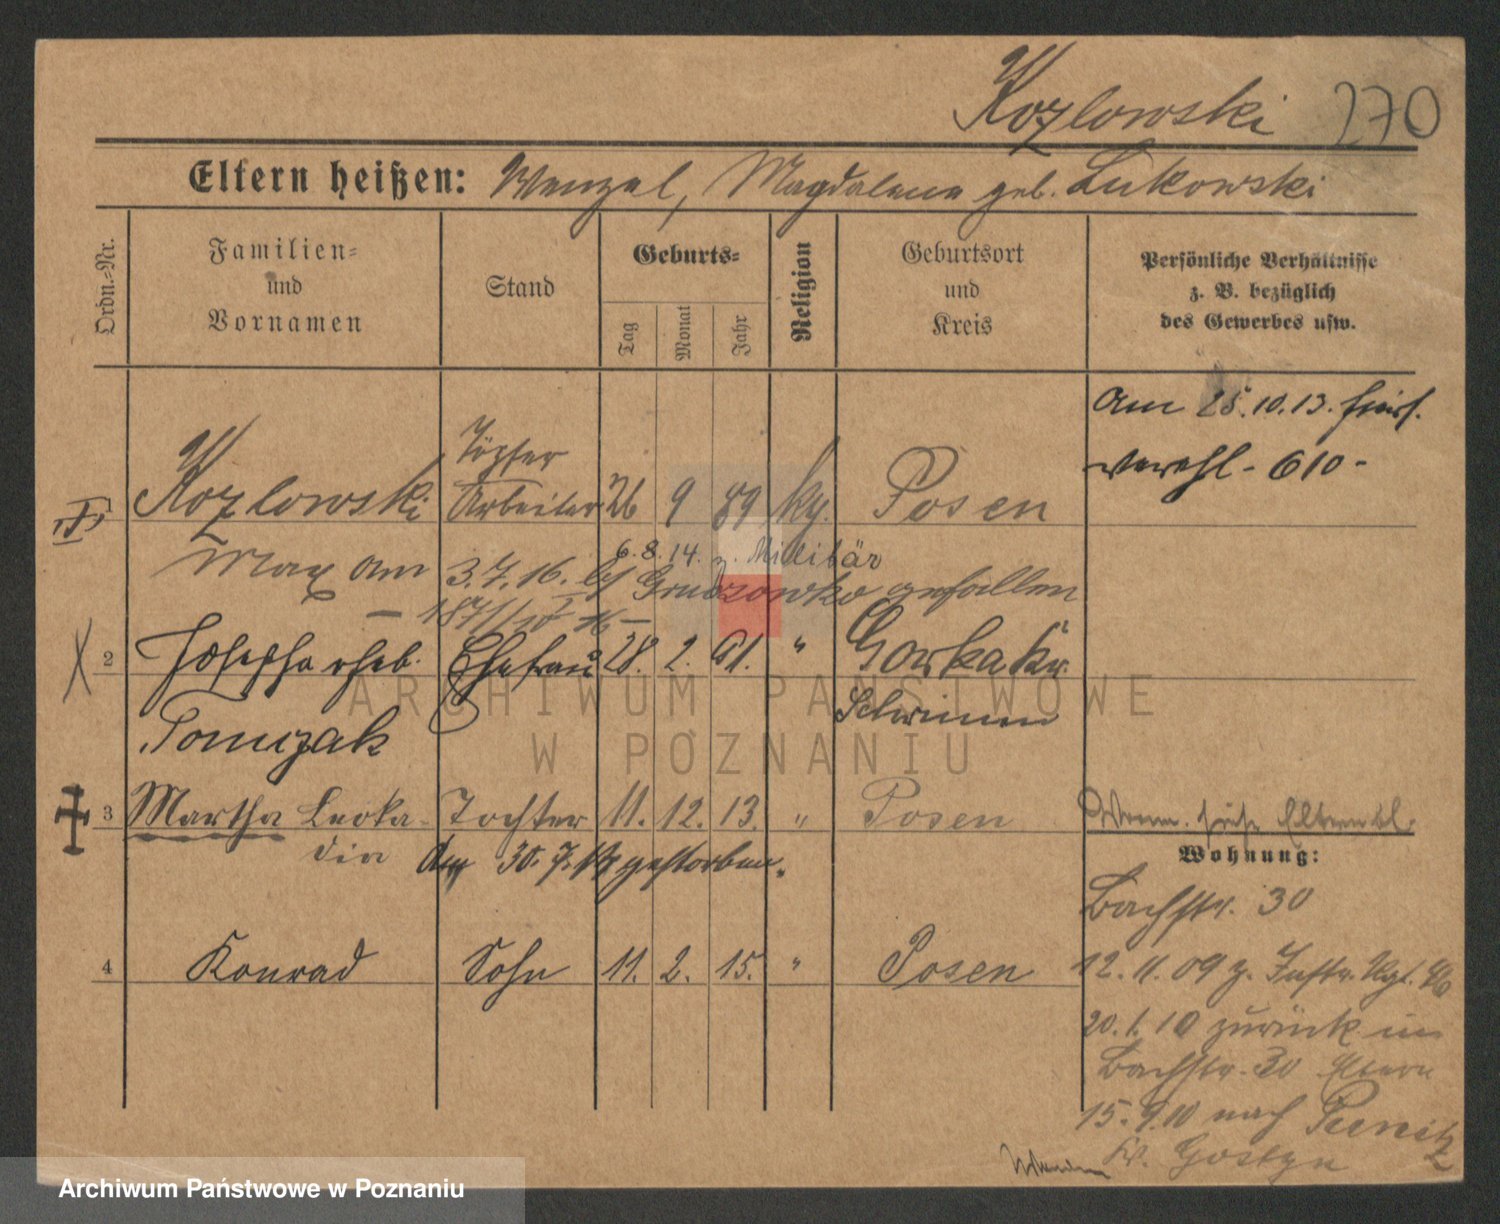 Kozlowski 270
Eltern heißen: Wenzel, Magdalena geb. Lukowski
Ordn.-Nr.
Familien-
und
Vornamen
Stand
Geburts-
Tag
Monat
Jahr
Religion
Geburtsort
und
Kreis
Persönliche Verhältnisse
z. B. bezüglich
des Gewerbes usw.
Am 25.10.13. hier
verehl. - 610 -
Töpfer
Kozlowski Arbeiter 26 9 89 kg. Posen
6.8.14. z. Militär
Max am 3.7.16. bei gefallen
2 Josepha geb. Ehefrau 28. 2. 91. " Gorka Kr.
Tomczak Schrimm
3 Martha Leoka- Tochter 11. 12. 13. " Posen
dia Am 30. 7. gestorben.
Wohnung:
Bachstr. 30
4 Konrad Sohn 11. 2. 15. " Posen
12. 11. 09 z. Inftr. Rgt. 46
20. 1. 10 zurück in
Bachstr. 30 Eltern
15. 9. 10 nach Punitz
Kr. Gostyn
ARCHIWUM PAŃSTWOWE
W POZNANIU
Archiwum Państwowe w Poznaniu